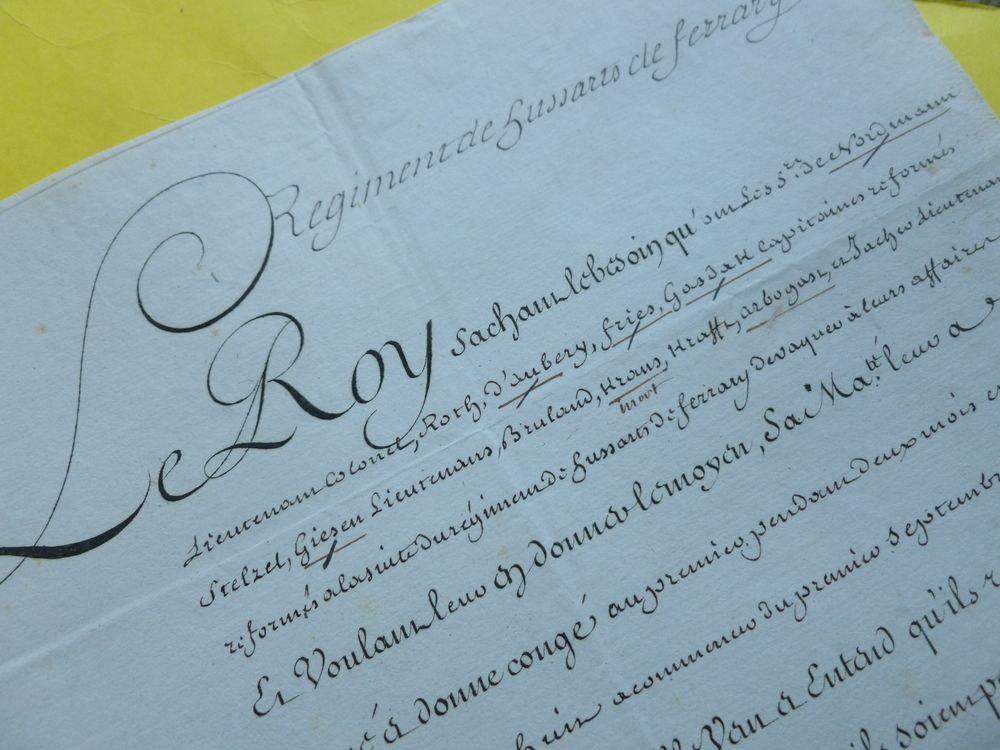 Regiment de hussarts de ferrary
Le Roy sachant le besoin qu'ont Les Srs. de Nordmann
Lieutenant Colonel, Roth, D'aubery, fries, Gosdak Capitaines reformés
Stelzel, Giesen Lieutenans, Bruland, Kraus, Krafft, arbogast, et Jaches Lieutenans
mort
reformés a la suite du regiment de hussarts de ferrary de vaquer à leurs affaires
Et Voulant leur en donner le moyen, Sa Maté. leur a
à donne congé au premier pendant deux mois et
a commencer du premier septembre
Veut et Entend qu'ils
soient